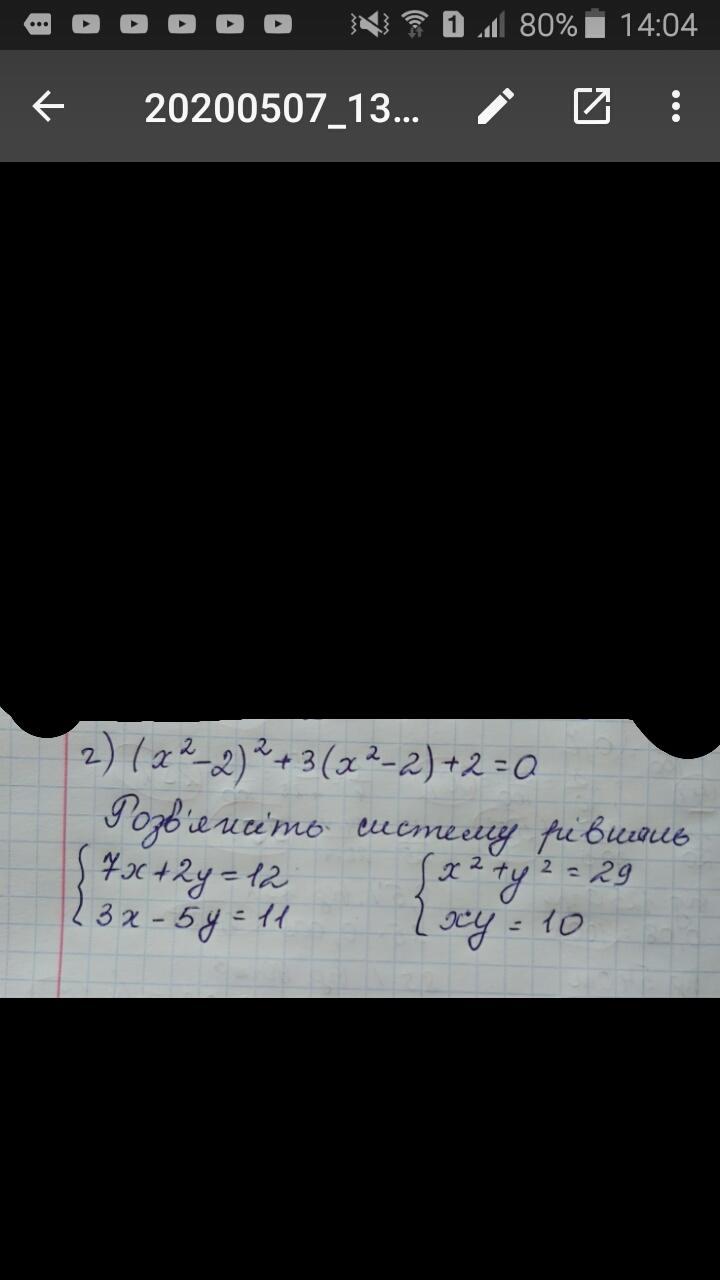 1 80% 14:04
20200507_13...
г) (x²-2)²+3(x²-2)+2=0
Розв'яжіть систему рівнянь
{7x+2y=12
{3x-5y=11
{x²+y²=29
{xy=10